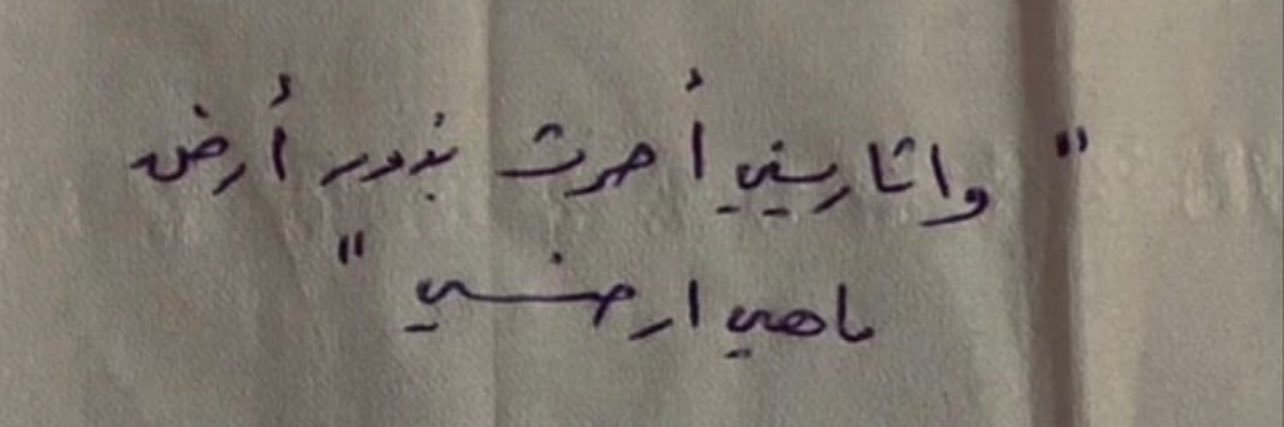 " واثاريني أحرث بذور أرض
ماهي ارضي "